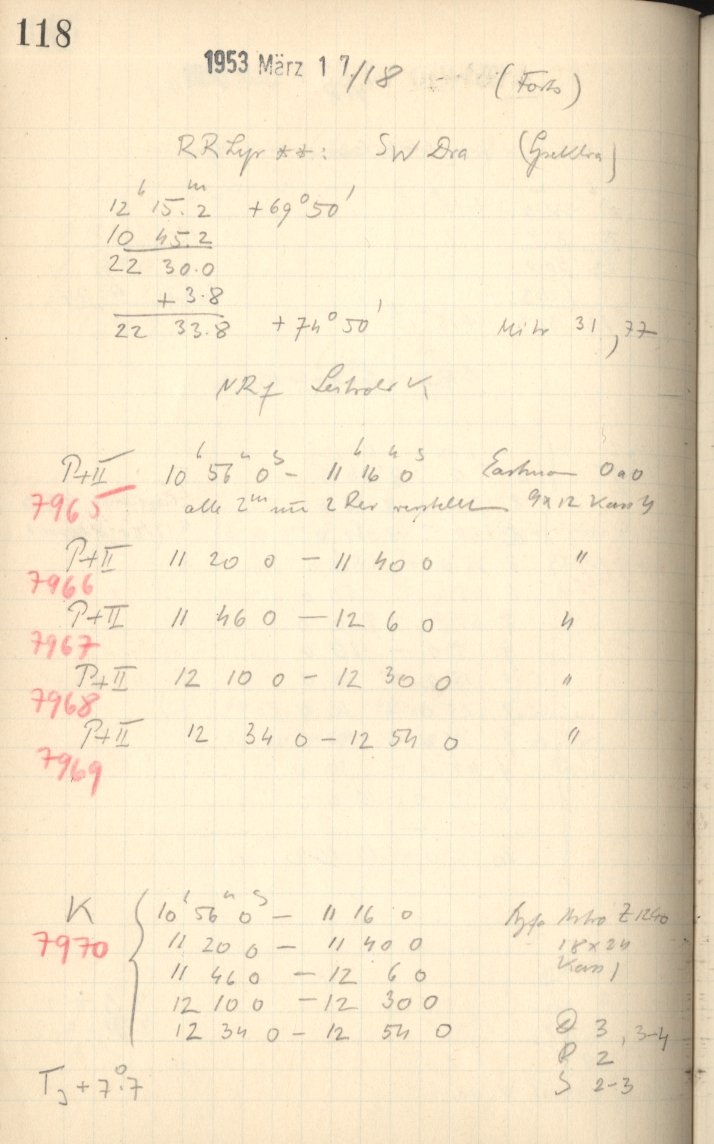 118
1953 März 17/18 (Forts)
RR Lyr **: SW Dra
12h 15.m2 +69°50'
10 45.2
22 30.0
+ 3.8
22 33.8 +74°50' Mitr 31, 77
P+II 10h 56m 0s – 11h 16m 0s Eastman OaO
7965 alle 2m um 2 Rev verstellt 9x12 Kass 4
P+II 11 20 0 – 11 40 0 "
7966
P+II 11 46 0 – 12 6 0 "
7967
P+II 12 10 0 – 12 30 0 "
7968
P+II 12 34 0 – 12 54 0 "
7969
K 10h 56m 0s – 11 16 0 Agfa Astro
7970 11 20 0 – 11 40 0 18x24
11 46 0 – 12 6 0 Kass 1
12 10 0 – 12 30 0
12 34 0 – 12 54 0 3, 3-4
2
TJ + 7°.7 S 2-3